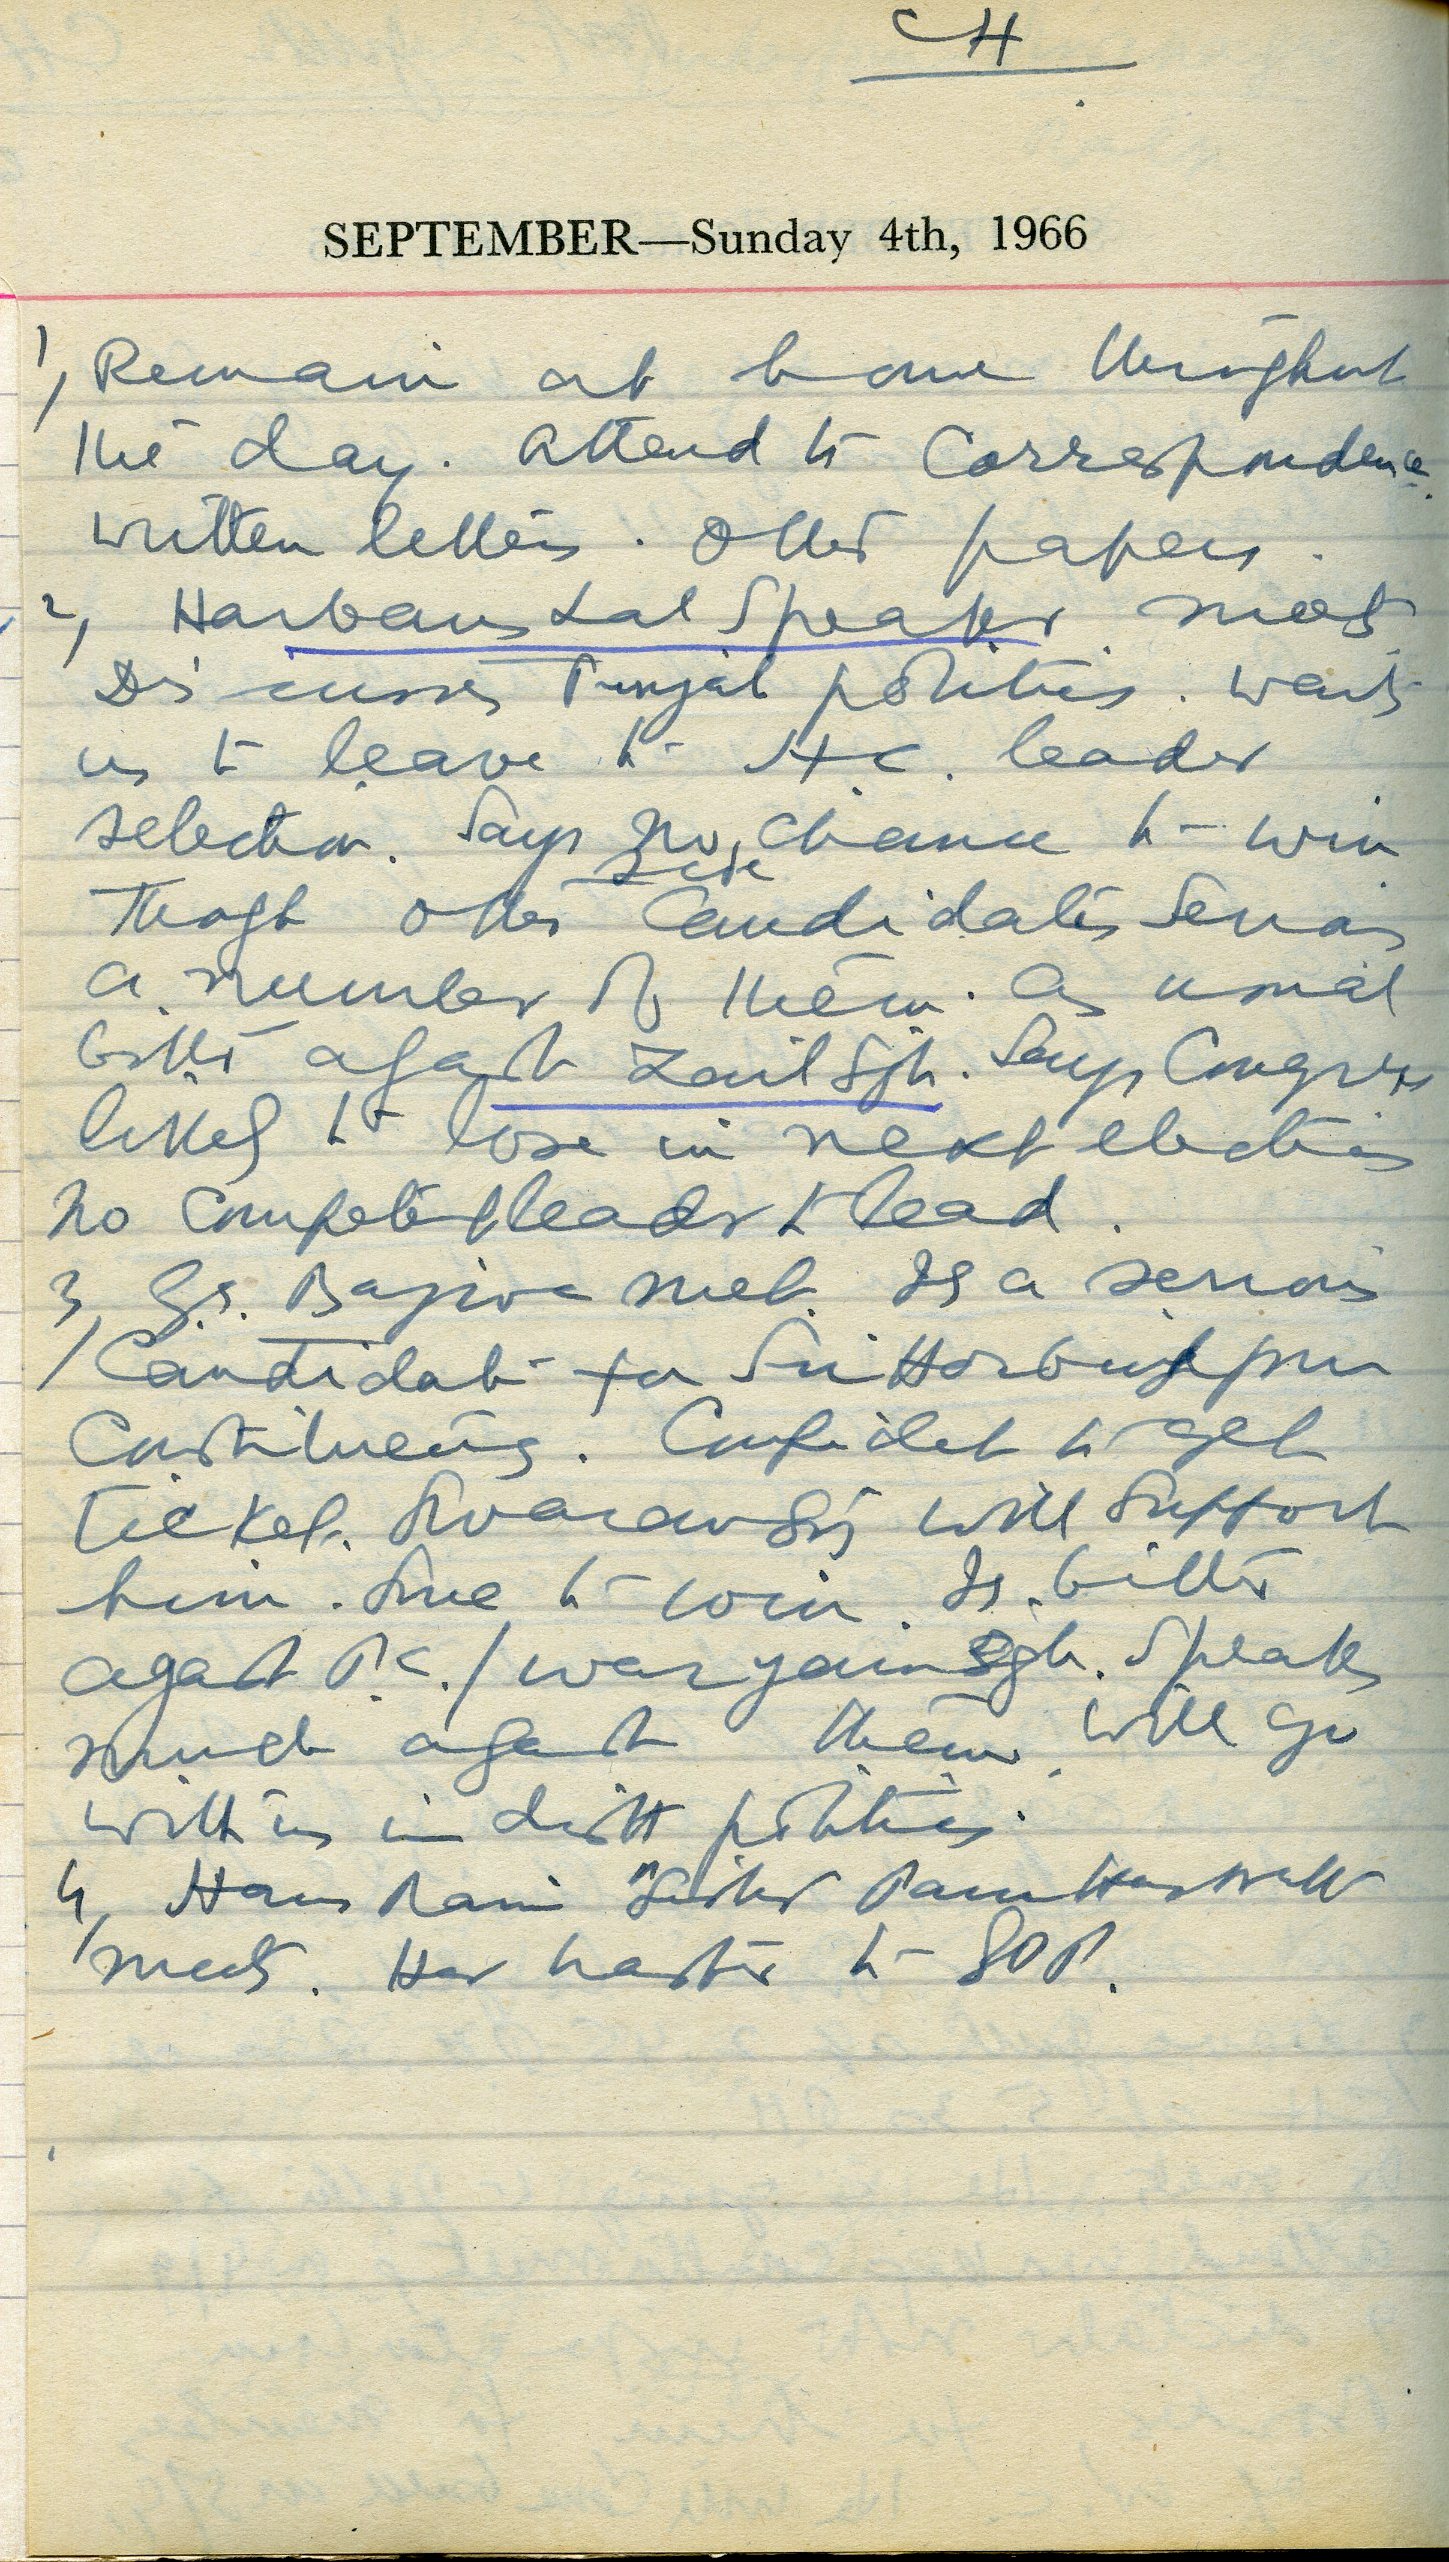 CH
SEPTEMBER—Sunday 4th, 1966
1, Remain at home throughout
the day. Attend to Correspondence.
written letters. Other papers.
2, Harbans Lal Speaker meets
Discusses Punjab politics. wants
us to leave to H.C. leader
selection. Says no chance to win
though other candidates serious
a number of them. As usual
bitter against Zail Sgh. Says Congress
likely to lose in next elections
no competent leader to lead.
3, G.S. met. Is a serious
Candidate for Sri Hargobindpur
Constituency. Confident to get
ticket. Swaran Sgh will support
him. Sure to win. Is bitter
against P.C./waryam Sgh. Speaks
much against them. will go
with us in distt politics.
4, Hans Rani
meets. Her to SDP.